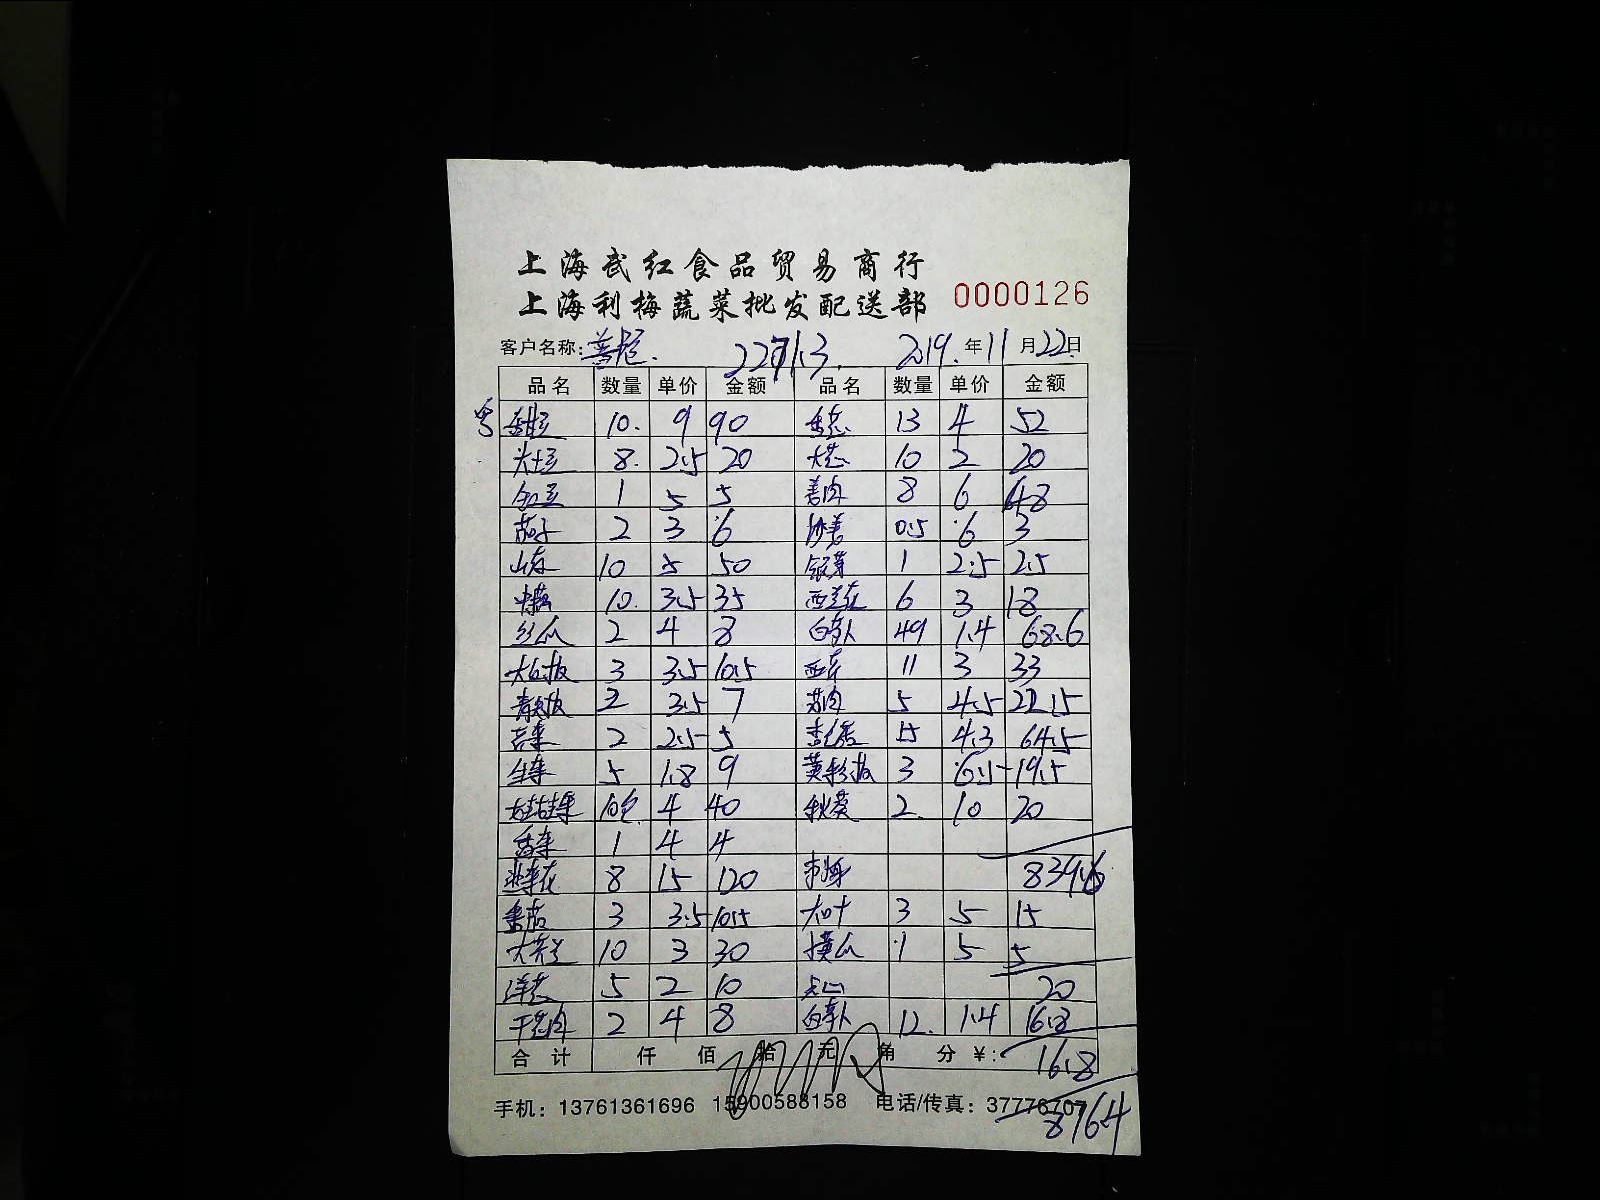 上海武红食品贸易商行
上海利梅蔬菜批发配送部 0000126
客户名称: 2019.年11月22日
品名 数量 单价 金额 品名 数量 单价 金额
10. 9 90 香芯 13 4 52
大土豆 8. 2.5 20 大芯 10 2 20
1 5 5 姜肉 8 6 48
茄子 2 3 6 沙姜 0.5 6 3
山药 10 5 50 银芽 1 2.5 2.5
10. 3.5 35 西兰花 6 3 18
丝瓜 2 4 8 白萝卜 49 1.4 68.6
大红椒 3 3.5 10.5 西芹 11 3 33
青尖椒 2 3.5 7 5 4.5 22.5
2 2.5 5 15 4.3 64.5
生菜 5 1.8 9 黄彩椒 3 6.5 19.5
10包 4 40 秋葵 2. 10 20
香菜 1 4 4
韭菜花 8 15 120 839.6
3 3.5 10.5 大叶 3 5 15
10 3 30 黄瓜 1 5 5
洋葱 5 2 10 点心 20
干葱肉 2 4 8 白萝卜 12. 1.4 16.8
合计 仟 佰 拾 元 角 分 ¥: 16.8
手机: 13761361696 15900588158 电话/传真: 37776707
876.4